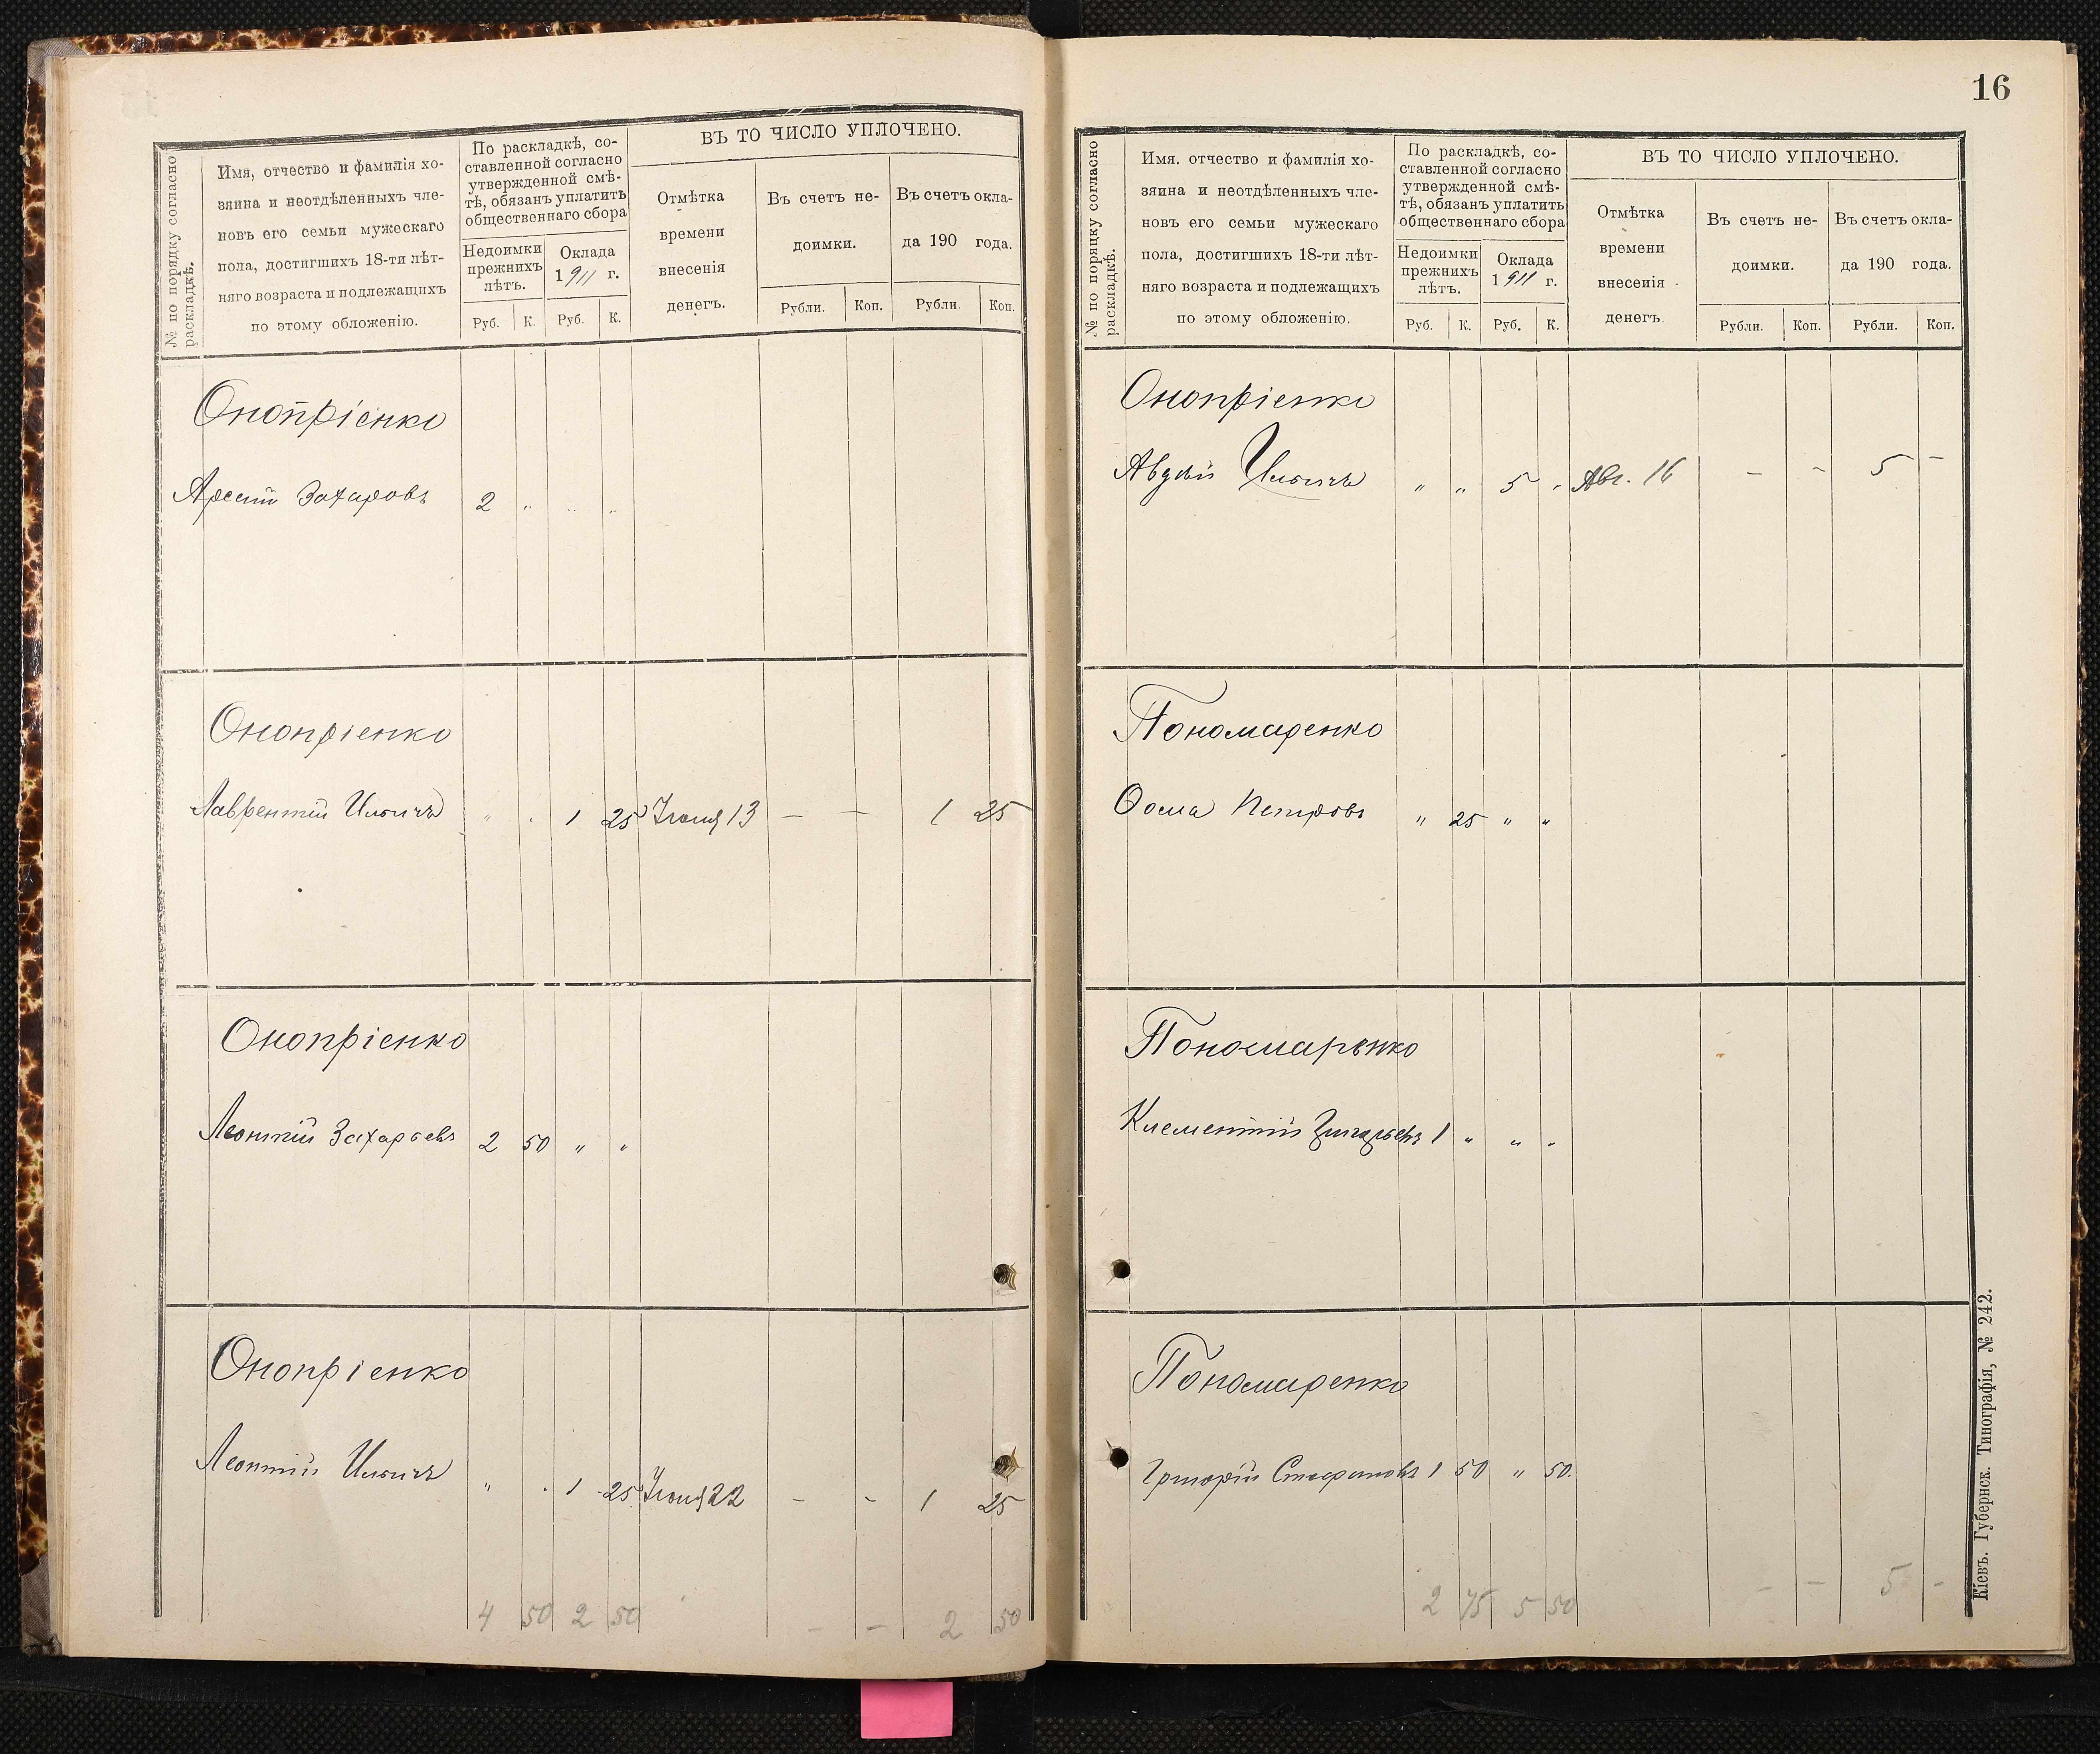 № по порядку согласно
раскладкѣ.
Имя, отчество и фамилія хо-
зяина и неотдѣленныхъ чле-
новъ его семьи мужескаго
пола, достигшихъ 18-ти лѣт-
няго возраста и подлежащихъ
по этому обложенію.
По раскладкѣ, со-
ставленной согласно
утвержденной смѣ-
тѣ, обязанъ уплатить
общественнаго сбора
Недоимки
прежнихъ
лѣтъ.
Оклада
1911 г.
Руб. К. Руб. К.
ВЪ ТО ЧИСЛО УПЛОЧЕНО.
Отмѣтка
времени
внесенія
денегъ.
Въ счетъ не-
доимки.
Въ счетъ окла-
да 190 года.
Рубли. Коп. Рубли. Коп.
Онопріенко
Арсеній Захаровъ 2 " " "
Онопріенко
Лаврентій Ильичъ " " 1 25 Іюня 13 — — 1 25
Онопріенко
Леонтій Захарьевъ 2 50 " "
Онопріенко
Леонтій Ильичъ " " 1 25 Іюня 22 - - 1 25
4 50 2 50 - - 2 50
16
№ по порядку согласно
раскладкѣ.
Имя. отчество и фамилія хо-
зяина и неотдѣленныхъ чле-
новъ его семьи мужескаго
пола, достигшихъ 18-ти лѣт-
няго возраста и подлежащихъ
по этому обложенію.
По раскладкѣ, со-
ставленной согласно
утвержденной смѣ-
тѣ, обязанъ уплатить
общественнаго сбора
Недоимки
прежнихъ
лѣтъ.
Оклада
1911 г.
Руб. К. Руб. К.
ВЪ ТО ЧИСЛО УПЛОЧЕНО.
Отмѣтка
времени
внесенія
денегъ.
Въ счетъ не-
доимки.
Въ счетъ окла-
да 190 года.
Рубли. Коп. Рубли. Коп.
Онопріенко
Авдѣй Ильичъ " " 5 " Авг. 16 - - 5 -
Пономаренко
Ѳома Петровъ " 25 " "
Пономаренко
Клементій 1 " " "
Пономаренко
Григорій Стефановъ 1 50 " 50.
2 75 5 50 - - 5 -
Кіевъ. Губернск. Типографія, № 242.